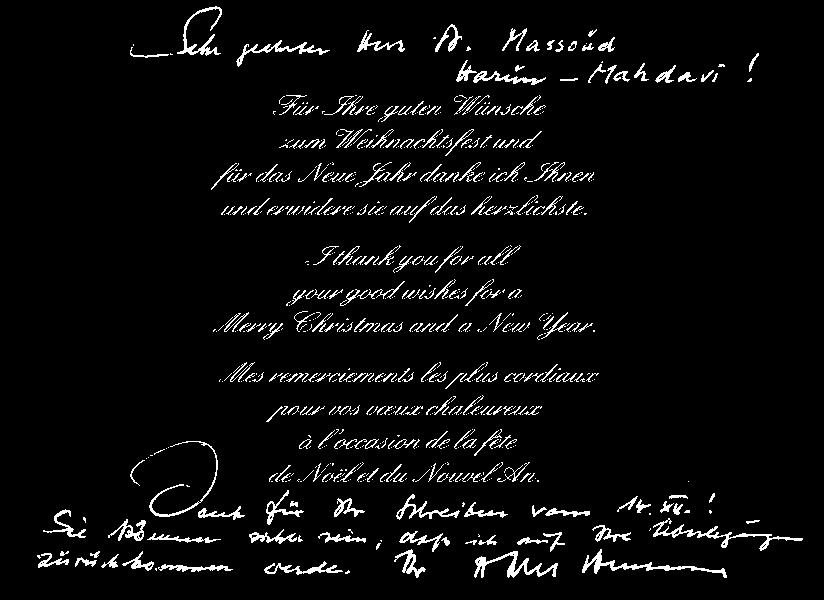 Sehr geehrter Herr Dr. Massoud
Harun - Mahdavi !
Für Ihre guten Wünsche
zum Weihnachtsfest und
für das Neue Jahr danke ich Ihnen
und erwidere sie auf das herzlichste.
I thank you for all
your good wishes for a
Merry Christmas and a New Year.
Mes remerciements les plus cordiaux
pour vos vœux chaleureux
à l'occasion de la fête
de Noël et du Nouvel An.
Dank für Ihr Schreiben vom 14. XII. !
Sie können sicher sein, daß ich auf Ihre Überlegungen
zurückkommen werde. Ihr